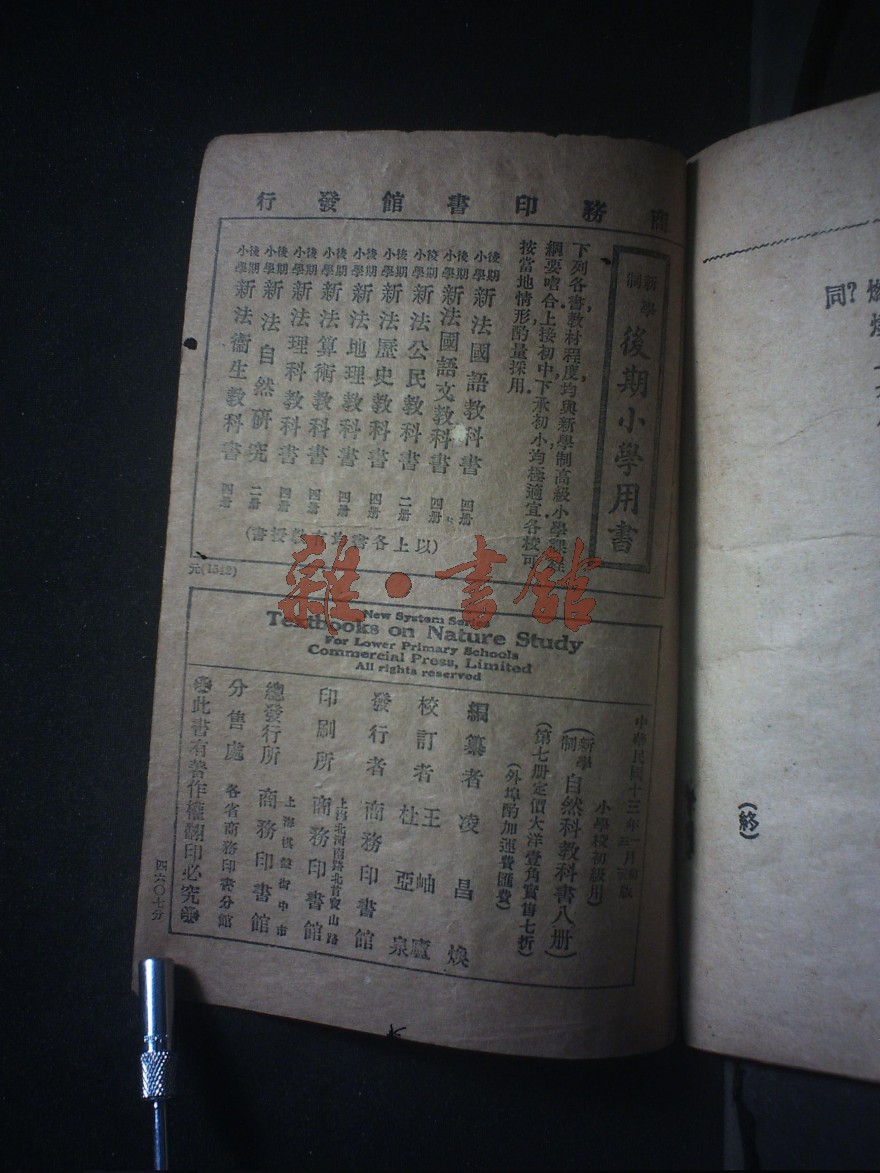 商務印書館發行
新學制
後期小學用書
下列各書教材程度均與新學制高級小學課程
綱要啥合上接初中下承初小均極適宜各校可
按當地情形酌量採用
後期小學 新法國語教科書 四册
後期小學 新法國語文教科書 四册
後期小學 新法公民教科書 二册
後期小學 新法歷史教科書 四册
後期小學 新法地理教科書 四册
後期小學 新法算術教科書 四册
後期小學 新法理科教科書 四册
後期小學 新法自然研究 二册
後期小學 新法衞生教科書 四册
(以上各書均有教授書)
元(1542)
雜·書館
New System Series
Textbooks on Nature Study
For Lower Primary Schools
Commercial Press, Limited
All rights reserved
中華民國十三年一月版
小學校初級用
(新學制)自然科教科書八册)
(第七册定價大洋壹角實售七折)
(外埠酌加運費匯費)
編纂者 凌昌煥
校訂者 王岫廬
杜亞泉
發行者 商務印書館
印刷所 上海北河南路北首寶山路
商務印書館
總發行所 上海棋盤街中市
商務印書館
分售處 各省商務印書分館
此書有著作權翻印必究
四六〇七分
同?
(終)